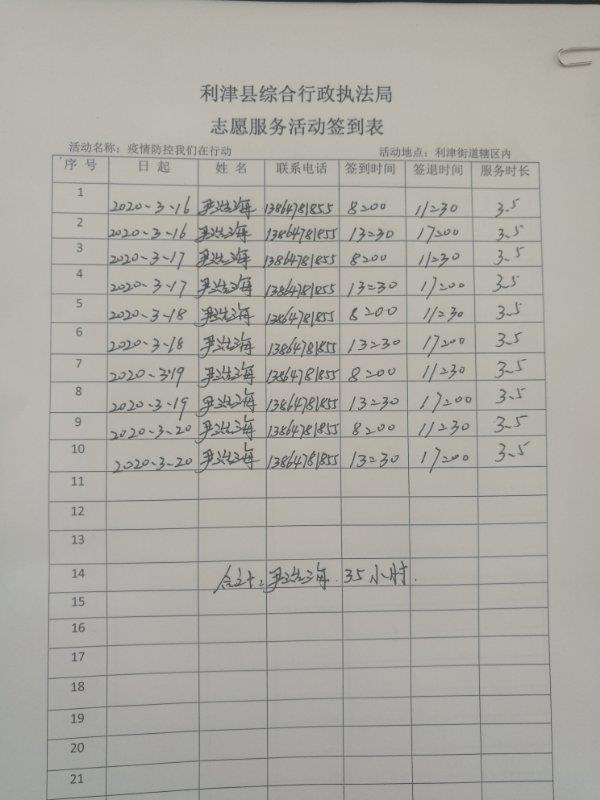 利津县综合行政执法局
志愿服务活动签到表
活动名称：疫情防控我们在行动 活动地点：利津街道辖区内
序号 日起 姓名 联系电话 签到时间 签退时间 服务时长
1 2020-3-16 尹浩海 13864781855 8:00 11:30 3.5
2 2020-3-16 尹浩海 13864781855 13:30 17:00 3.5
3 2020-3-17 尹浩海 13864781855 8:00 11:30 3.5
4 2020-3-17 尹浩海 13864781855 13:30 17:00 3.5
5 2020-3-18 尹浩海 13864781855 8:00 11:30 3.5
6 2020-3-18 尹浩海 13864781855 13:30 17:00 3.5
7 2020-3-19 尹浩海 13864781855 8:00 11:30 3.5
8 2020-3-19 尹浩海 13864781855 13:30 17:00 3.5
9 2020-3-20 尹浩海 13864781855 8:00 11:30 3.5
10 2020-3-20 尹浩海 13864781855 13:30 17:00 3.5
11
12
13
14 合计：尹浩海 35小时.
15
16
17
18
19
20
21